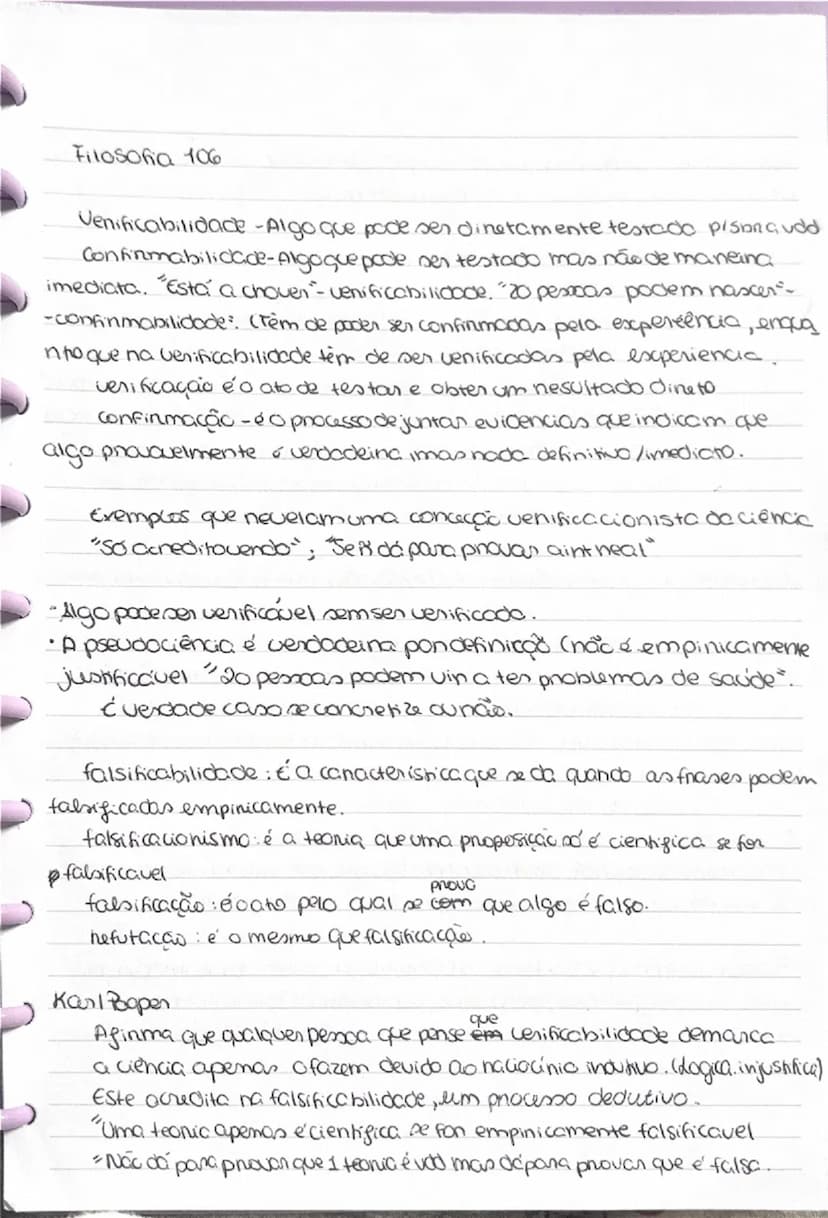 Filosofia 106
Verificabilidade - Algo que pode ser diretamente testado p/s
Confirmabilidade - Algo que pode ser testado mas não de maneira
imediata. "Está a chover" - verificabilidade. "20 pessoas podem nascer" -
- confirmabilidade". (Têm de poder ser confirmadas pela experiência, enqua
nto que na verificabilidade têm de ser verificadas pela experiencia.
verificação é o ato de testar e obter um resultado direto
confirmação - é o processo de juntar evidencias que indicam que
algo provavelmente é verdadeira, mas nada definitivo/imediato.
Exemplos que revelam uma conceção verificacionista da ciência
"Só acredito vendo", "Se dá para provar aint real"
- Algo pode ser verificável sem ser verificado.
• A pseudociência é verdadeira por definição (não é empiricamente
justificável "20 pessoas podem vir a ter problemas de saúde".
É verdade caso se concretize ou não.
falsificabilidade: É a característica que se dá quando as frases podem
falsificadas empiricamente.
falsificacionismo: é a teoria que uma proposição só é científica se for
falsificavel
falsificação: é o ato pelo qual se prova que algo é falso.
refutação: é o mesmo que falsificação.
Karl Poper
Afirma que qualquer pessoa que pense que verificabilidade demarca
a ciência apenas o fazem devido ao raciocínio indutivo. (Logica. injustifica)
Este acredita na falsificabilidade, um processo dedutivo.
"Uma teoria apenas é científica se for empiricamente falsificavel
"Não dá para provar que 1 teoria é vdd mas dá para provar que é falsa.